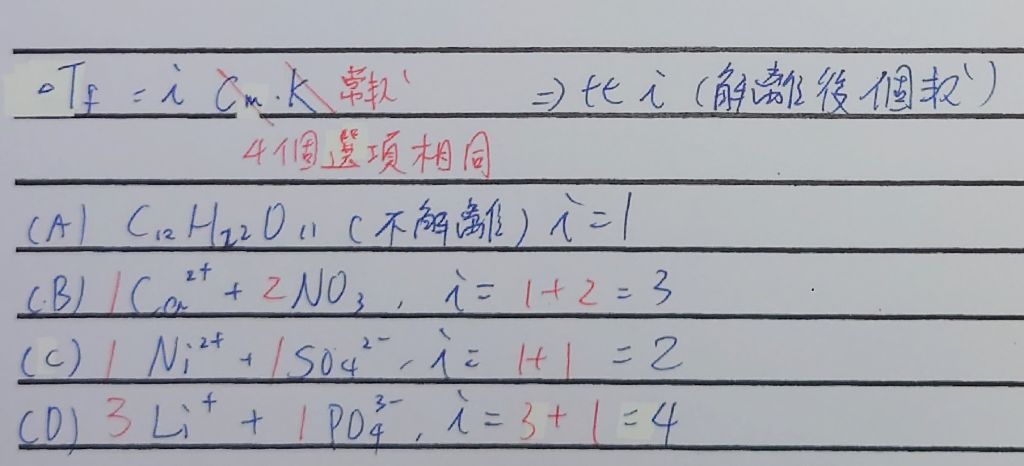 △Tf = i Cm·K 常数 ⇒ 比 i (解離後個数)
4個選項相同
(A) C₁₂H₂₂O₁₁ (不解離) i=1
(B) 1Ca²⁺ + 2NO₃, i = 1+2 = 3
(C) 1 Ni²⁺ + 1SO₄²⁻, i = 1+1 = 2
(D) 3Li⁺ + 1PO₄³⁻, i = 3+1 = 4